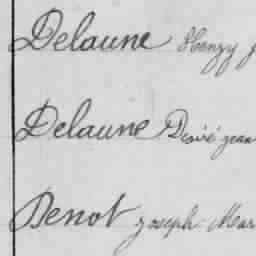 Delaune Henry J
Delaune Désiré Jean
Denot Joseph Mar